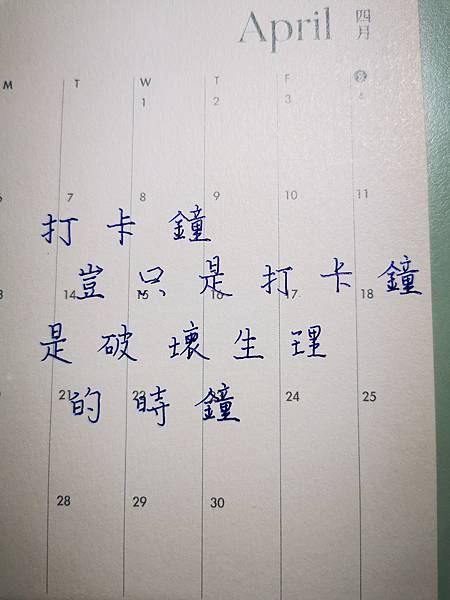 April 四月
M T W T F S
1 2 3 4
7 8 9 10 11
打卡鐘
豈只是打卡鐘
14 15 16 17 18
是破壞生理
的時鐘
21 22 24 25
28 29 30